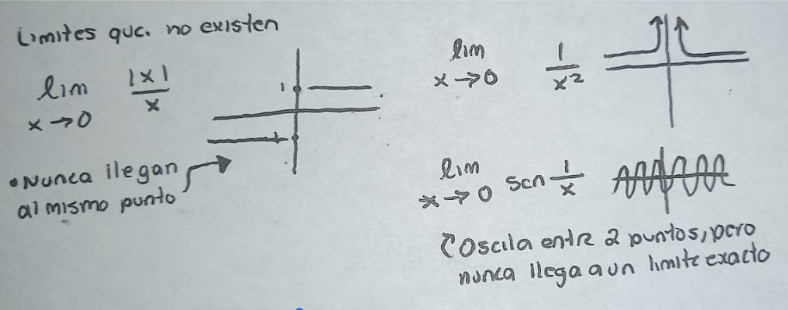 Limites que. no existen
lim |x|/x
x→0
1
-1
• Nunca llegan
al mismo punto
lim 1/x²
x→0
lim sen 1/x
x→0
Oscila entre 2 puntos, pero
nunca llega a un limite exacto